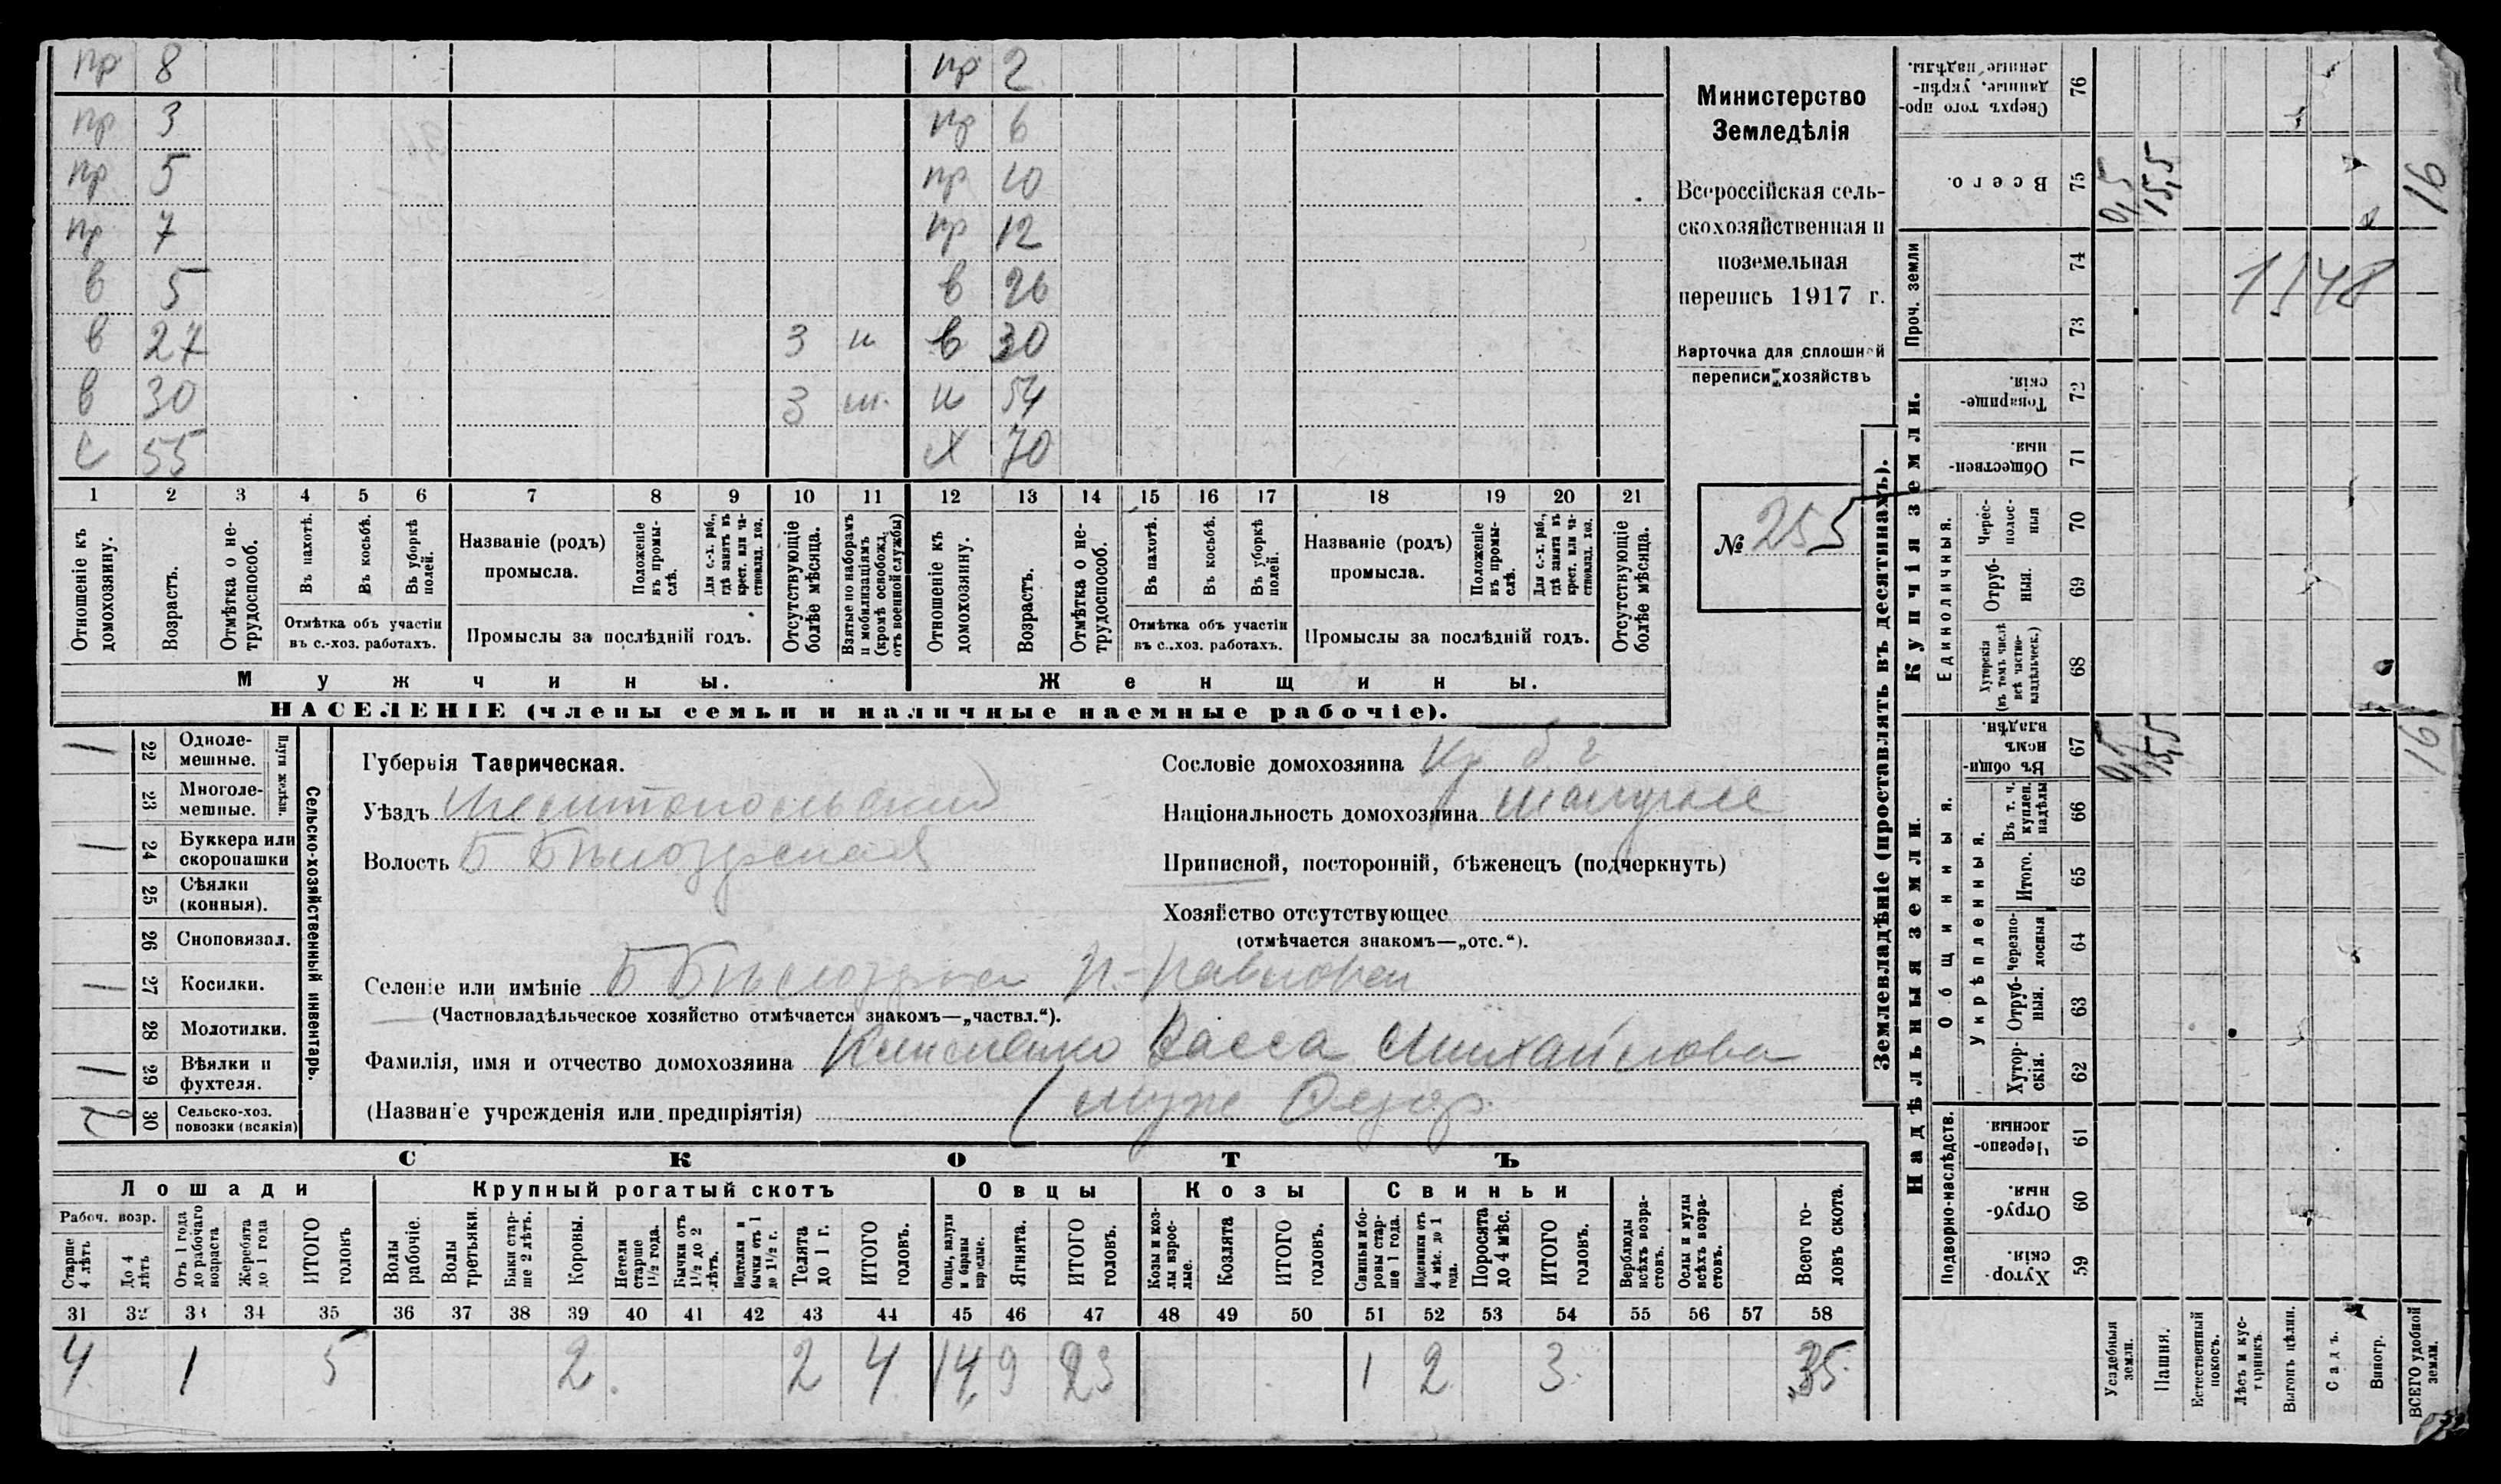 пр 8 пр 2
пр 3 пр 6
пр 5 пр 10
пр 7 пр 12
в 5 в 26
в 27 3 в 30
в 30 3 54
с 55 х 70
1 2 3 4 5 6 7 8 9 10 11 12 13 14 15 16 17 18 19 20 21
Отношеніе къ домохозяину.
Возрастъ.
Отмѣтка о не-трудоспособ.
Въ пахотѣ.
Въ косьбѣ.
Въ уборкѣ полей.
Отмѣтка объ участіи въ с.-хоз. работахъ.
Названіе (родъ) промысла.
Положеніе въ промы-слѣ.
Для с.-х. раб., гдѣ занятъ въ крест. или ча-стновлад. хоз.
Промыслы за послѣдній годъ.
Отсутствующіе болѣе мѣсяца.
Взятые по наборамъ и мобилизаціямъ (кромѣ освобожд. отъ военной службы)
Отношеніе къ домохозяину.
Возрастъ.
Отмѣтка о не-трудоспособ.
Въ пахотѣ.
Въ косьбѣ.
Въ уборкѣ полей.
Отмѣтка объ участіи въ с.-хоз. работахъ.
Названіе (родъ) промысла.
Положеніе въ промы-слѣ.
Для с.-х. раб., гдѣ занята въ крест. или ча-стновлад. хоз.
Промыслы за послѣдній годъ.
Отсутствующіе болѣе мѣсяца.
Мужчины. Женщины.
НАСЕЛЕНІЕ (члены семьи и наличные наемные рабочіе).
Министерство
Земледѣлія
Всероссійская сель-
скохозяйственная и
поземельная
перепись 1917 г.
Карточка для сплошной
переписи хозяйствъ
№ 255
Плуги желѣзн.
1 22 Одноле-мешные.
23 Многоле-мешные.
1 24 Буккера или скоропашки
25 Сѣялки (конныя).
26 Сноповязал.
1 27 Косилки.
28 Молотилки.
1 29 Вѣялки и фухтеля.
2 30 Сельско-хоз. повозки (всякія)
Сельско-хозяйственный инвентарь.
Губернія Таврическая.
Уѣздъ Мелитопольский
Волость Б Бѣлозерская
Сословіе домохозяина Кр б г
Національность домохозяина малорос
Приписной, посторонній, бѣженецъ (подчеркнуть)
Хозяйство отсутствующее
(отмѣчается знакомъ—„отс.“).
Селеніе или имѣніе Б Бѣлозерка р. Павловка
(Частновладѣльческое хозяйство отмѣчается знакомъ—„частвл.“).
Фамилія, имя и отчество домохозяина Клименко Васса Михайлова
(Названіе учрежденія или предпріятія) (муж Федор
СКОТЪ
Лошади Крупный рогатый скотъ Овцы Козы Свиньи
Рабоч. возр.
Старше 4 лѣтъ
До 4 лѣтъ
Отъ 1 года до рабочаго возраста
Жеребята до 1 года
ИТОГО головъ
Волы рабочіе.
Волы третьяки.
Быки стар-ше 2 лѣтъ.
Коровы.
Нетели старше 1½ года.
Бычки отъ 1½ до 2 лѣтъ.
Подтелки и бычки отъ 1 до 1½ г.
Телята до 1 г.
ИТОГО головъ.
Овцы, валухи и бараны взрослые.
Ягнята.
ИТОГО головъ.
Козы и коз-лы взрос-лые.
Козлята
ИТОГО головъ.
Свиньи бо-ровы стар-ше 1 года.
Подсвинки отъ 4 мѣс. до 1 года.
Поросята до 4 мѣс.
ИТОГО головъ.
Верблюды всѣхъ возра-стовъ.
Ослы и мулы всѣхъ возра-стовъ.
Всего го-ловъ скота.
31 32 33 34 35 36 37 38 39 40 41 42 43 44 45 46 47 48 49 50 51 52 53 54 55 56 57 58
4 1 5 2 2 4 14 9 23 1 2 3 35
Землевладѣніе (проставлять въ десятинахъ).
Надѣльныя земли. Купчія земли.
Проч. земли
Подворно-наслѣдств.
Общинныя.
Укрѣпленныя.
Единоличныя.
Сверхъ того про-данные, укрѣп-ленные надѣлы. 76
Всего. 75 0,5 15,5 16
74
73
1148
Товарище-скія. 72
Обществен-ныя. 71
Черес-полос-ныя 70
Отруб-ныя. 69
Хуторскія (въ томъ числѣ всѣ частно-владѣльческ.) 68
Въ общин-номъ владѣн. 67 0,5 15,5 16
Въ т. ч. куплен. надѣлы 66
Итого. 65
Черезпо-лосныя 64
Отруб-ныя. 63
Хутор-скія. 62
Черезпо-лосныя. 61
Отруб-ныя. 60
Хутор-скія. 59
Усадебныя земли.
Пашня.
Естественный покосъ.
Лѣсъ и кус-тарникъ.
Выгонъ цѣлин.
Садъ.
Виногр.
ВСЕГО удобной земли.